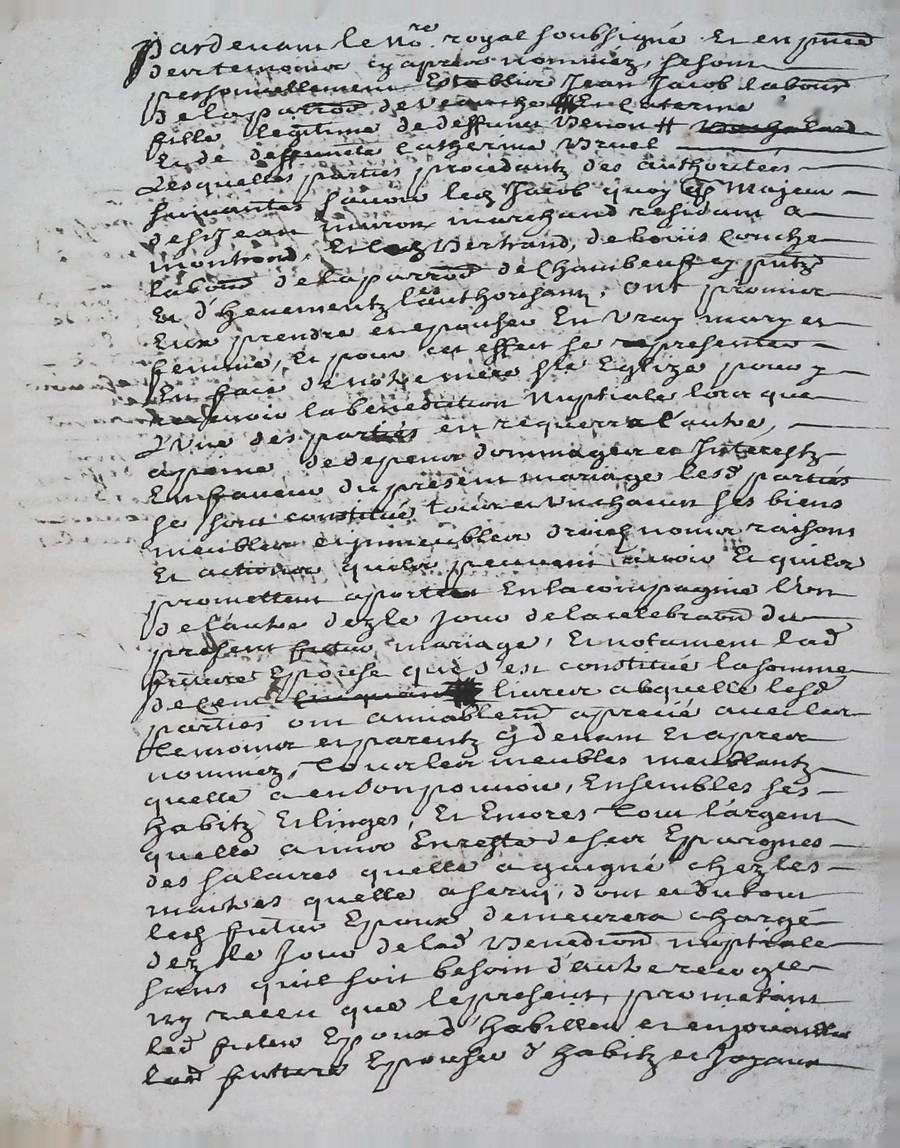 Pardevant le no.re royal soubsigné Et en p̄nce
des tesmoins cy apres nommez, se sont
personnellement Establis Jean Jacob labour
de la parroē de Veauche Et Catherine
fille legitime de deffunct Benoit
Et de deffuncte Catherine Bruel
Lesquelles parties procedantz des authoritées
suivantes savoir led Jacob quoy q majeur
de s.r Jean marchand residant a
montrond, Et lad Bertrand, de Louis Couche
labour de la parroē de Chambeuf cy p̄ntz
Et d'hevementz les authorisantz, ont promis
Eux prendre et epouser En vray mary et
femme, Et pour cet effect se representer
En face de notre mere Ste Eglize pour y
recevoir la benediction Nuptiale lors que
L'Une des parties en requerra l'autre,
a peine de depens dommages et Interestz
En faveur du present mariage lesd parties
se sont constitué tous et Un chacun ses biens
meubles et immeubles droictz noms raisons
Et actions quils peuvent avoir Et quils
promettent apporter En la compagnie l'Un
de l'autre dez le Jour de la celebraōn du
present futur mariage, Et notament lad
future Epouse qui s'est constitué la somme
de cent livres a laquelle lesd
parties ont amiablem̄ aprecié avec les
tesmoins et parentz cy devant Et apres
nommez, Tous les meubles meublantz
quelle a en son pouvoir, Ensembles ses
habitz Et linges, Et Encores Tout l'argent
quelle a mis En reste de ses Epargnes
des salaires quelle a gaigné chez les
maitres quelle a servy, dont et du tout
led futur Epoux demeurera chargé
dez le Jour de lad Benediōn nuptiale
sans quil soit besoin d'autre
ny receu que le present, promettant
led futur Epoux d'habiller et enjouailler
lad future Epouse d'habitz et Joyaux